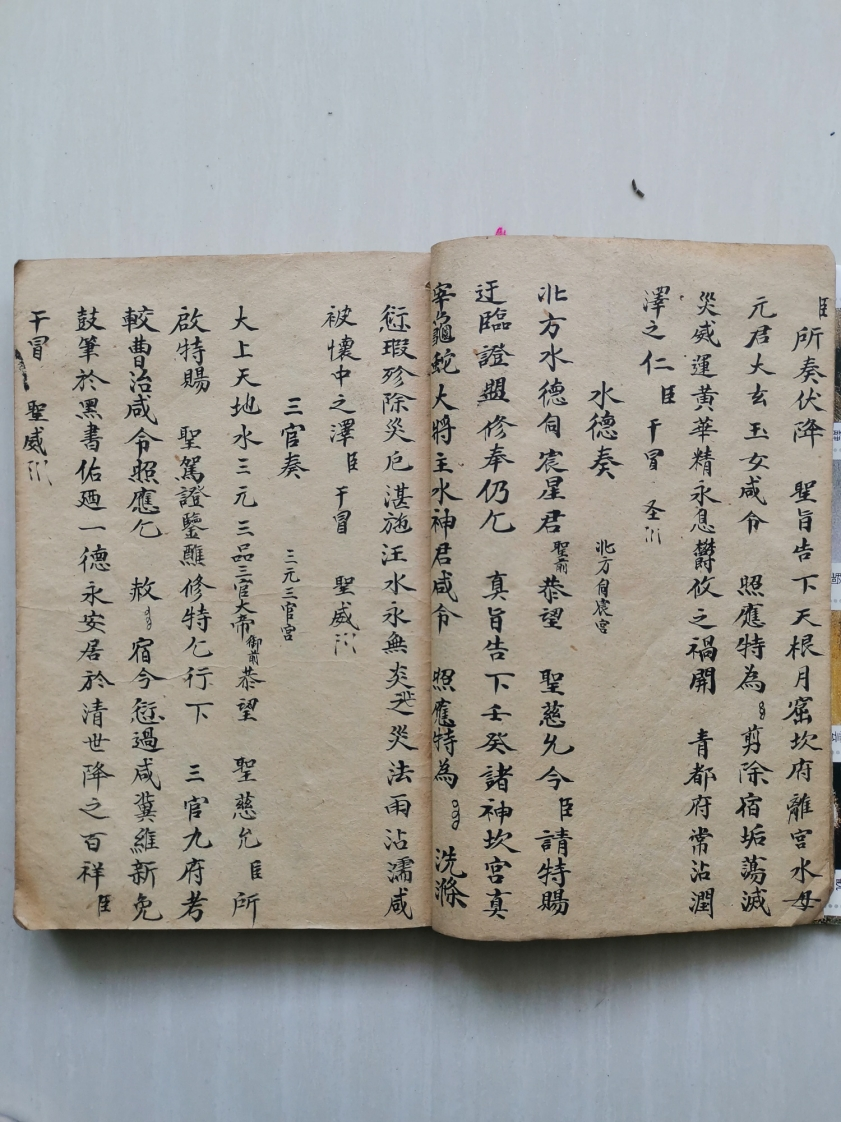 臣所奏伏降 聖旨告下天根月窟坎府離宮水母
元君大玄玉女咸令 照應特為 剪除宿垢蕩滅
災威運黃華精永息欝攸之禍開 青都府常沾潤
澤之仁臣 干冒 圣
水德奏 北方自宸宮
北方水德伺宸星君聖前恭望 聖慈允今臣請特賜
迂臨證盟修奉仍乞 真旨告下壬癸諸神坎宮真
宰龜蛇大將主水神君咸令 照應特為 洗滌
愆瑕殄除災厄湛施汪水永無炎之災法雨沾濡咸
被懷中之澤臣干冒 聖威
三官奏 三元三官宮
大上天地水三元三品三官大帝御前恭望 聖慈允臣所
啟特賜 聖駕證鑒醮修特乞行下 三官九府考
較曹治咸令照應乞 赦 宿今愆過咸冀維新免
鼓筆於黑書佑廼一德永安居於清世降之百祥臣
干冒 聖威